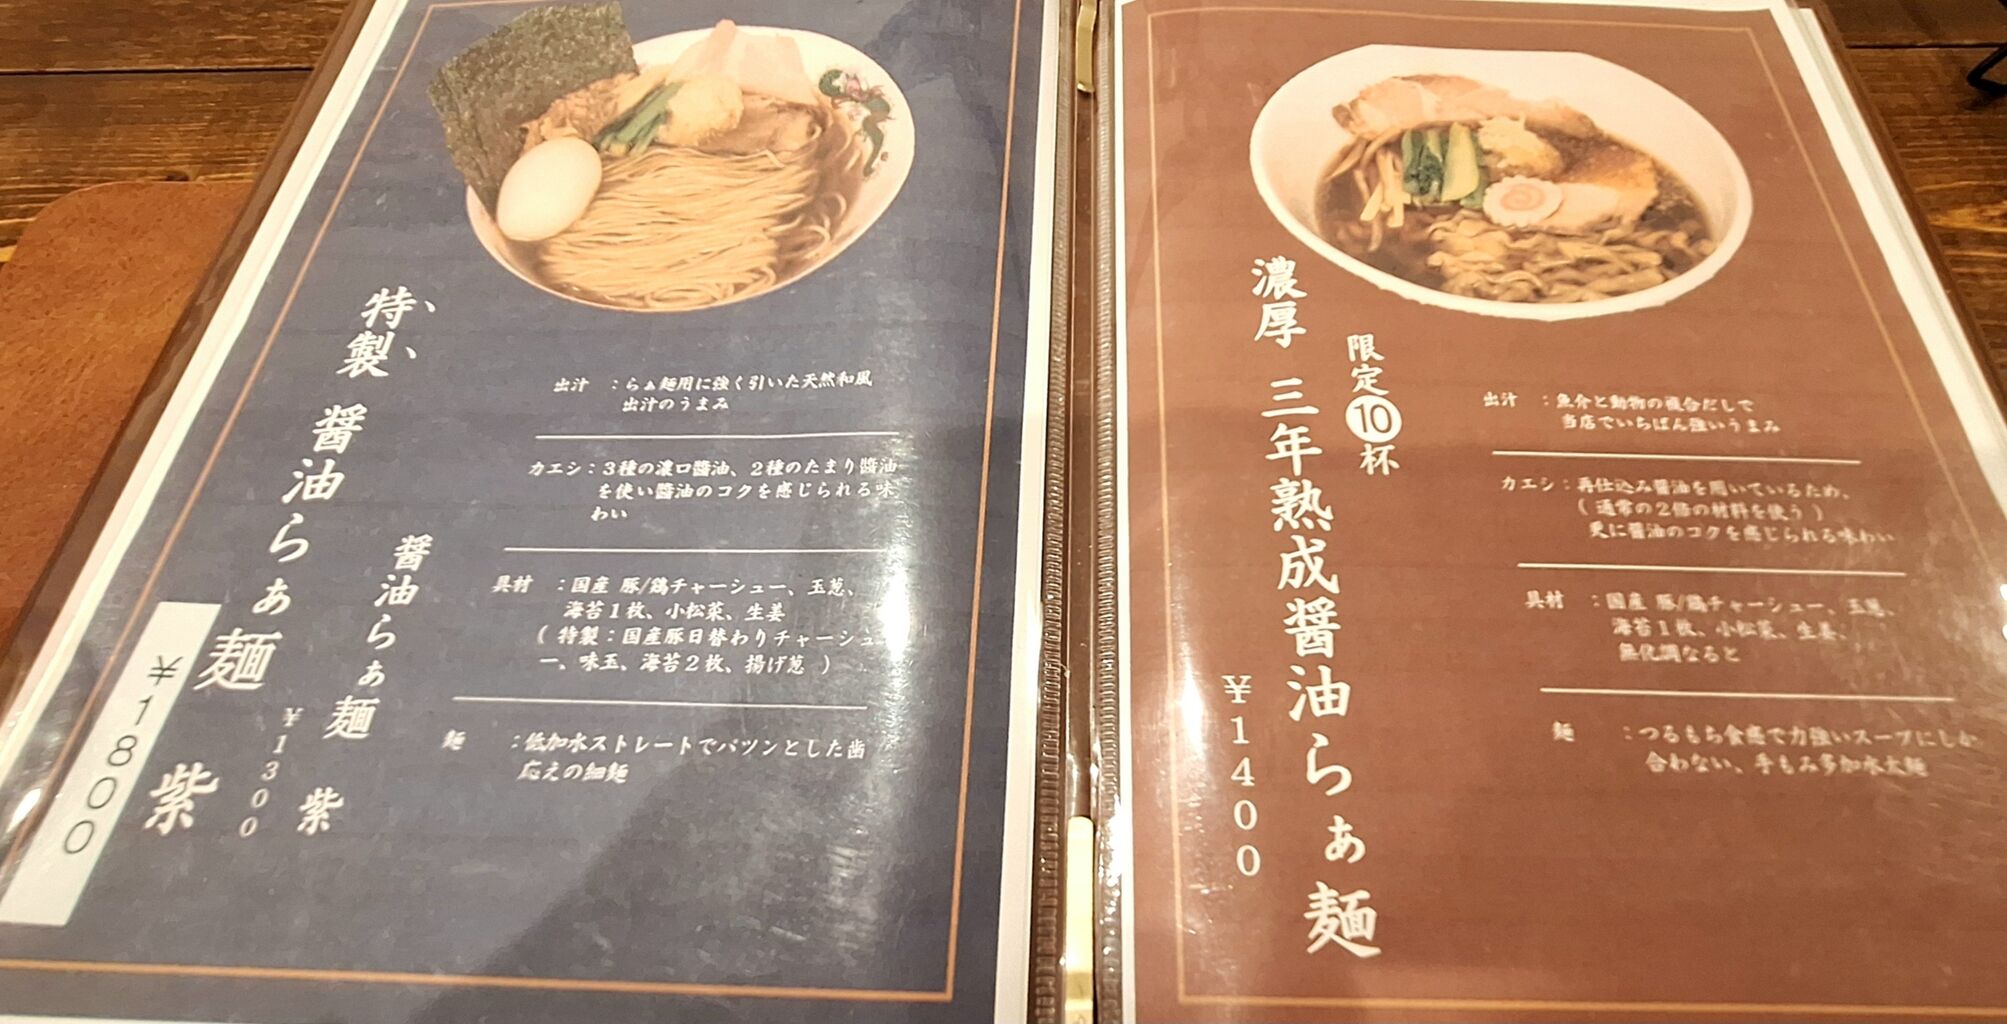 特製 醤油らぁ麺 紫
￥1800
醤油らぁ麺 紫
￥1300
出汁　：らぁ麺用に強く引いた天然和風
出汁のうまみ
カエシ：３種の濃口醬油、２種のたまり醬油
を使い醬油のコクを感じられる味
わい
具材　：国産 豚/鶏チャーシュー、玉葱、
海苔１枚、小松菜、生姜
( 特製：国産豚日替わりチャーシュ
ー、味玉、海苔２枚、揚げ葱 )
麺　　：低加水ストレートでパツンとした歯
応えの細麺
濃厚 三年熟成醤油らぁ麺
限定10杯
￥1400
出汁　：魚介と動物の複合だしで
当店でいちばん強いうまみ
カエシ：再仕込み醤油を用いているため、
( 通常の２倍の材料を使う )
更に醤油のコクを感じられる味わい
具材　：国産 豚/鶏チャーシュー、玉葱、
海苔１枚、小松菜、生姜、
無化調なると
麺　　：つるもち食感で力強いスープにしか
合わない、手もみ多加水太麺